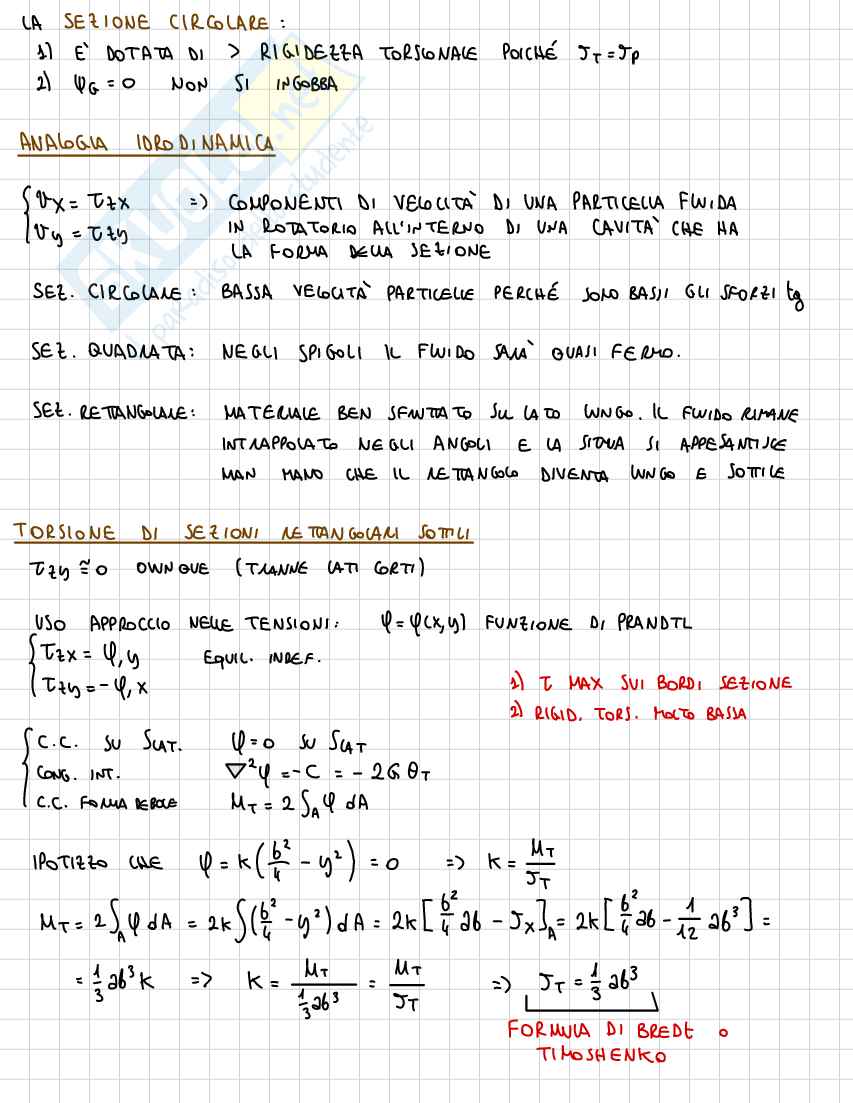 LA SEZIONE CIRCOLARE :
1) E' DOTATA DI > RIGIDEZZA TORSIONALE POICHÉ J_T = J_P
2) φ_G = 0 NON SI INGOBBA
ANALOGIA IDRODINAMICA
{ v_x = τ_zx => COMPONENTI DI VELOCITA' DI UNA PARTICELLA FLUIDA
v_y = τ_zy IN ROTATORIO ALL'INTERNO DI UNA CAVITA' CHE HA
LA FORMA DELLA SEZIONE
SEZ. CIRCOLARE : BASSA VELOCITA' PARTICELLE PERCHÉ SONO BASSI GLI SFORZI tg
SEZ. QUADRATA : NEGLI SPIGOLI IL FLUIDO SARA' QUASI FERMO.
SEZ. RETTANGOLARE : MATERIALE BEN SFRUTTATO SU LATO LUNGO. IL FLUIDO RIMANE
INTRAPPOLATO NEGLI ANGOLI E LA SITUA SI APPESANTISCE
MAN MANO CHE IL RETTANGOLO DIVENTA LUNGO E SOTTILE
TORSIONE DI SEZIONI RETTANGOLARI SOTTILI
τ_zy ≅ 0 OVUNQUE (TRANNE LATI CORTI)
USO APPROCCIO NELLE TENSIONI : φ = φ(x,y) FUNZIONE DI PRANDTL
{ τ_zx = φ,y EQUIL. INDEF.
τ_zy = -φ,x
1) τ MAX SUI BORDI SEZIONE
2) RIGID. TORS. MOLTO BASSA
{ C.C. SU S_LAT. φ = 0 SU S_LAT
CONG. INT. ∇²φ = -C = -2Gθ_T
C.C. FORMA DEBOLE M_T = 2∫_A φ dA
IPOTIZZO CHE φ = k(b²/4 - y²) = 0 => k = M_T/J_T
M_T = 2∫_A φ dA = 2k∫(b²/4 - y²) dA = 2k[b²/4 ab - J_x]_A = 2k[b²/4 ab - 1/12 ab³] =
= 1/3 ab³ k => k = M_T/(1/3 ab³) = M_T/J_T => J_T = 1/3 ab³
FORMULA DI BREDT o
TIMOSHENKO